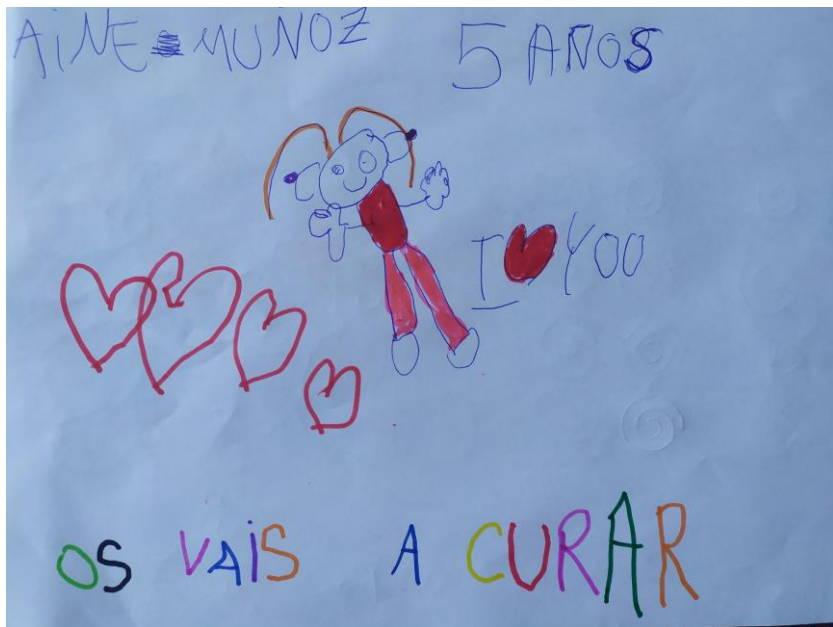 AINE MUÑOZ 5 AÑOS
I ❤ YOU
OS VAIS A CURAR